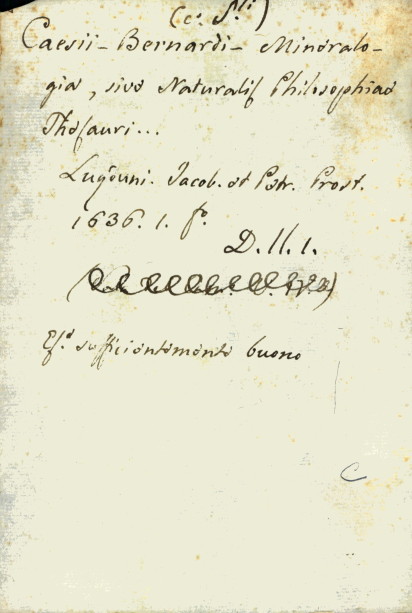 (c. S.ti)
Caesii - Bernardi - Mineralo-
gia, sive Naturalis Philosophiae
Thesauri...
Lugduni. Jacob. et Petr. Prost.
1636. 1. fo.
D. II. 1.
Es.e sufficientemente buono
C